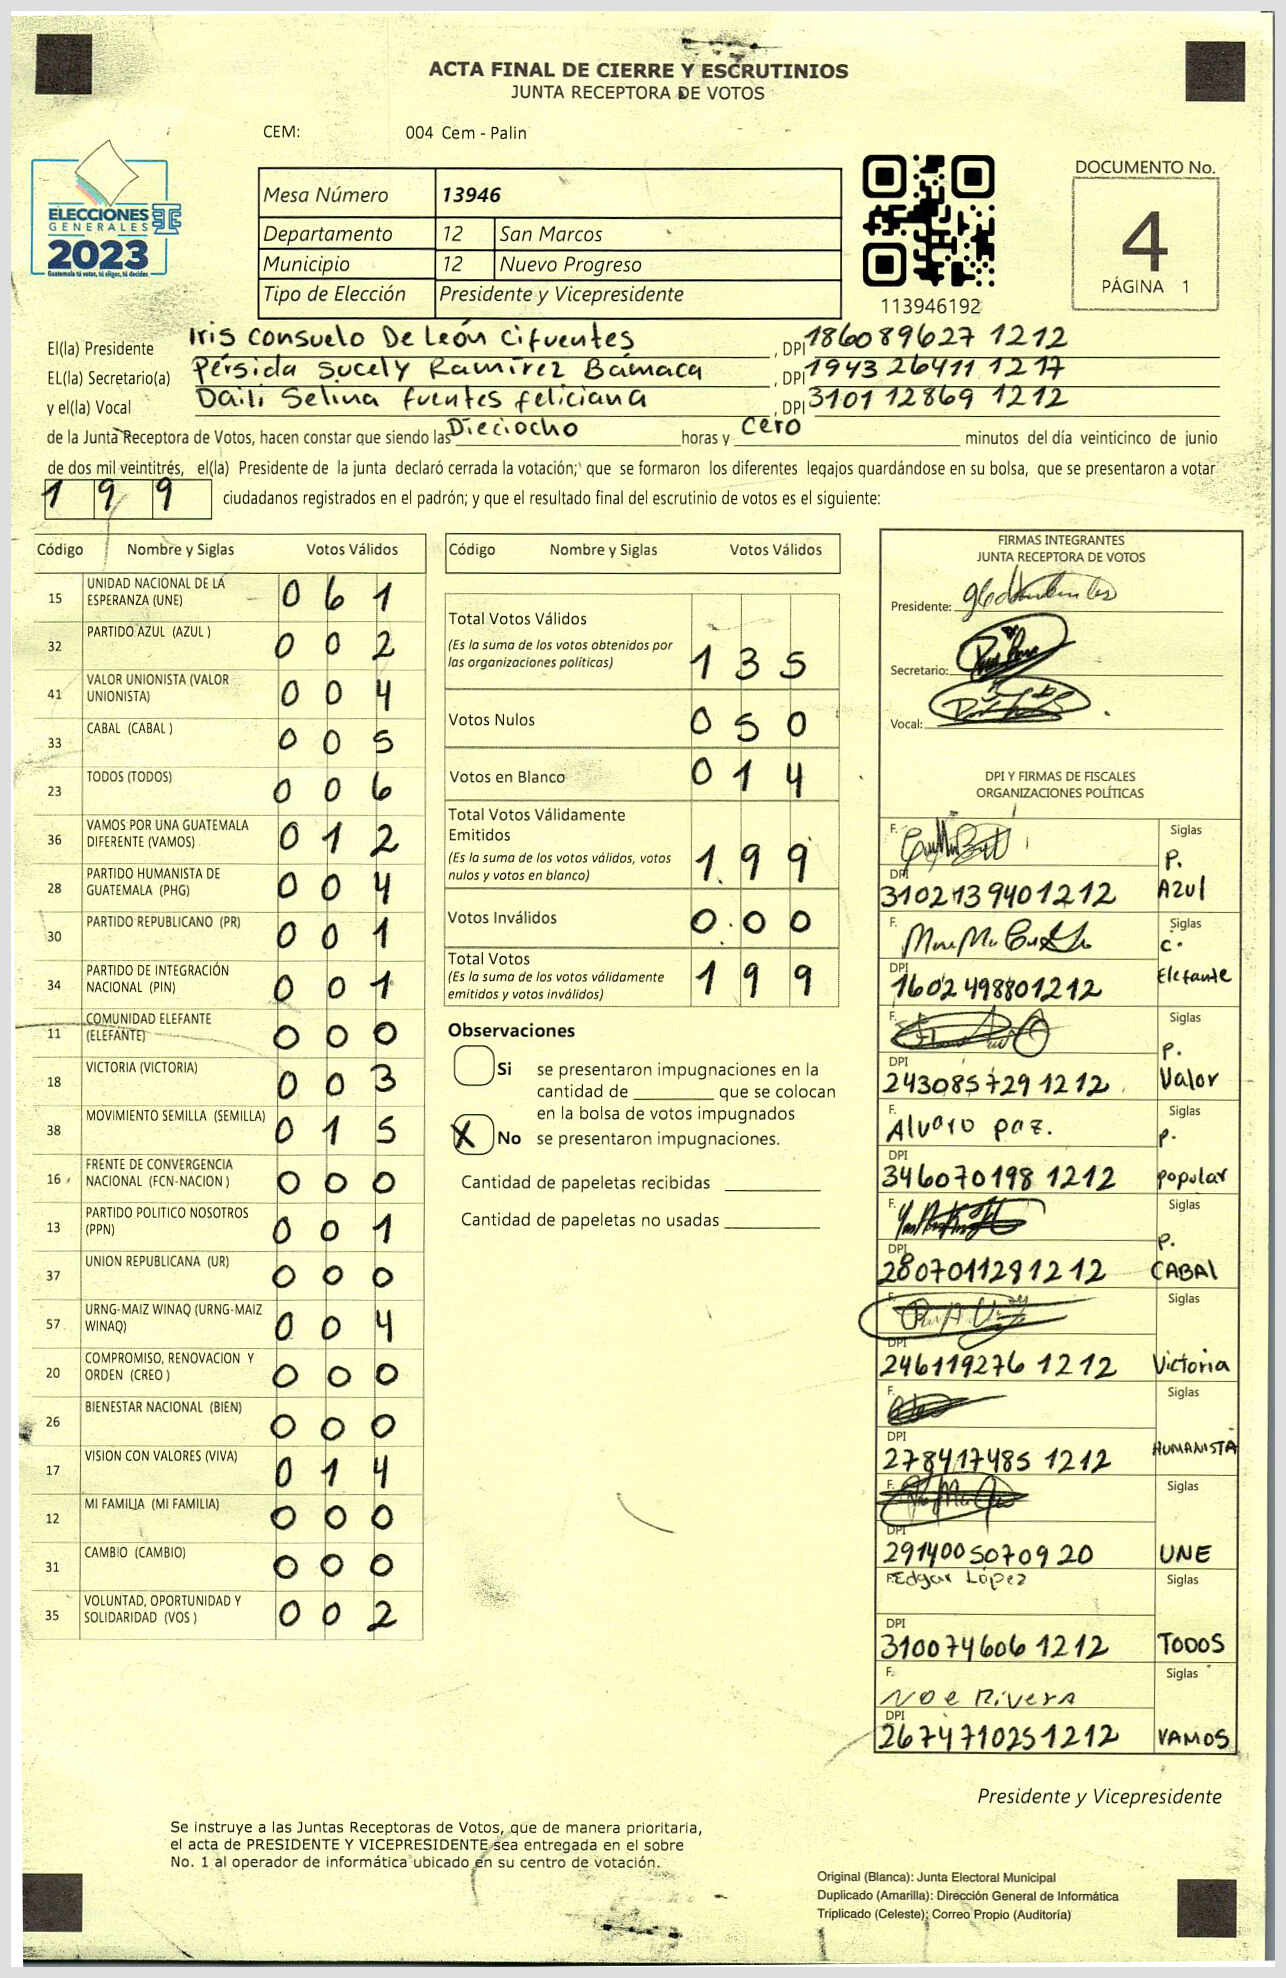 ACTA FINAL DE CIERRE Y ESCRUTINIOS
JUNTA RECEPTORA DE VOTOS
CEM: 004 Cem - Palin
ELECCIONES
GENERALES
2023
Guatemala tú votas, tú eliges, tú decides
Mesa Número 13946
Departamento 12 San Marcos
Municipio 12 Nuevo Progreso
Tipo de Elección Presidente y Vicepresidente
113946192
DOCUMENTO No.
4
PÁGINA 1
El(la) Presidente Iris Consuelo De León Cifuentes, DPI 186089627 1212
EL(la) Secretario(a) Pérsida Sucely Ramírez Bámaca, DPI 1943 26411 1217
y el(la) Vocal Daili Selina fuentes feliciana, DPI 3101 12869 1212
de la Junta Receptora de Votos, hacen constar que siendo las Dieciocho horas y Cero minutos del día veinticinco de junio
de dos mil veintitrés, el(la) Presidente de la junta declaró cerrada la votación; que se formaron los diferentes legajos guardándose en su bolsa, que se presentaron a votar
199 ciudadanos registrados en el padrón; y que el resultado final del escrutinio de votos es el siguiente:
Código Nombre y Siglas Votos Válidos
15 UNIDAD NACIONAL DE LA ESPERANZA (UNE) 061
32 PARTIDO AZUL (AZUL ) 002
41 VALOR UNIONISTA (VALOR UNIONISTA) 004
33 CABAL (CABAL ) 005
23 TODOS (TODOS) 006
36 VAMOS POR UNA GUATEMALA DIFERENTE (VAMOS) 012
28 PARTIDO HUMANISTA DE GUATEMALA (PHG) 004
30 PARTIDO REPUBLICANO (PR) 001
34 PARTIDO DE INTEGRACIÓN NACIONAL (PIN) 001
11 COMUNIDAD ELEFANTE (ELEFANTE) 000
18 VICTORIA (VICTORIA) 003
38 MOVIMIENTO SEMILLA (SEMILLA) 015
16 FRENTE DE CONVERGENCIA NACIONAL (FCN-NACION ) 000
13 PARTIDO POLITICO NOSOTROS (PPN) 001
37 UNION REPUBLICANA (UR) 000
57 URNG-MAIZ WINAQ (URNG-MAIZ WINAQ) 004
20 COMPROMISO, RENOVACION Y ORDEN (CREO ) 000
26 BIENESTAR NACIONAL (BIEN) 000
17 VISION CON VALORES (VIVA) 014
12 MI FAMILIA (MI FAMILIA) 000
31 CAMBIO (CAMBIO) 000
35 VOLUNTAD, OPORTUNIDAD Y SOLIDARIDAD (VOS ) 002
Código Nombre y Siglas Votos Válidos
Total Votos Válidos
(Es la suma de los votos obtenidos por las organizaciones políticas) 135
Votos Nulos 050
Votos en Blanco 014
Total Votos Válidamente Emitidos
(Es la suma de los votos válidos, votos nulos y votos en blanco) 199
Votos Inválidos 000
Total Votos
(Es la suma de los votos válidamente emitidos y votos inválidos) 199
Observaciones
Si se presentaron impugnaciones en la
cantidad de ________ que se colocan
en la bolsa de votos impugnados
X No se presentaron impugnaciones.
Cantidad de papeletas recibidas
Cantidad de papeletas no usadas
FIRMAS INTEGRANTES
JUNTA RECEPTORA DE VOTOS
Presidente:
Secretario:
Vocal:
DPI Y FIRMAS DE FISCALES
ORGANIZACIONES POLÍTICAS
F. Siglas P. Azul
DPI 310213940 1212
F. Siglas C. Elefante
DPI 1602498801212
F. Siglas P. Valor
DPI 243085729 1212
F. Alvaro paz. Siglas P. popular
DPI 346070198 1212
F. Siglas P. CABAL
DPI 280701128 1212
F. Siglas Victoria
DPI 246119276 1212
F. Siglas HUMANISTA
DPI 278417485 1212
F. Siglas UNE
DPI 291400507 0920
F. Edgar López Siglas TODOS
DPI 310074606 1212
F. Noe Rivera Siglas VAMOS
DPI 267471025 1212
Presidente y Vicepresidente
Se instruye a las Juntas Receptoras de Votos, que de manera prioritaria,
el acta de PRESIDENTE Y VICEPRESIDENTE sea entregada en el sobre
No. 1 al operador de informática ubicado en su centro de votación.
Original (Blanca): Junta Electoral Municipal
Duplicado (Amarilla): Dirección General de Informática
Triplicado (Celeste): Correo Propio (Auditoría)